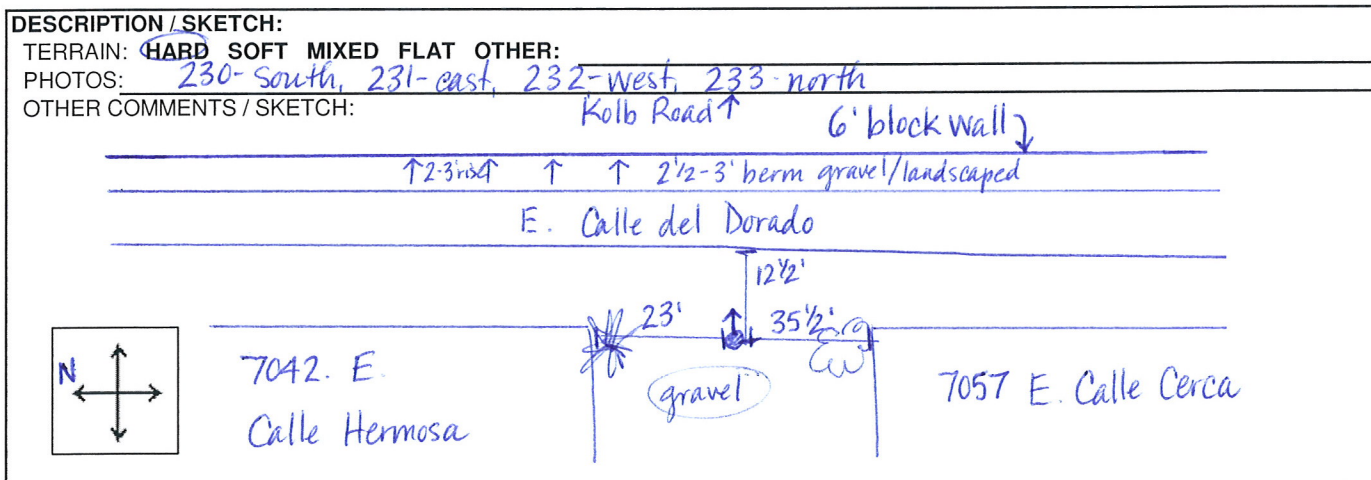 DESCRIPTION / SKETCH:
TERRAIN: HARD SOFT MIXED FLAT OTHER:
PHOTOS: 230-South, 231-east, 232-west, 233-north
OTHER COMMENTS / SKETCH:
Kolb Road ↑
6' block wall
↑2-3' rise↑ ↑ ↑ 2'1/2-3' berm gravel/landscaped
E. Calle del Dorado
12 1/2'
23' 35 1/2'
N
7042. E.
Calle Hermosa
gravel
7057 E. Calle Cerca